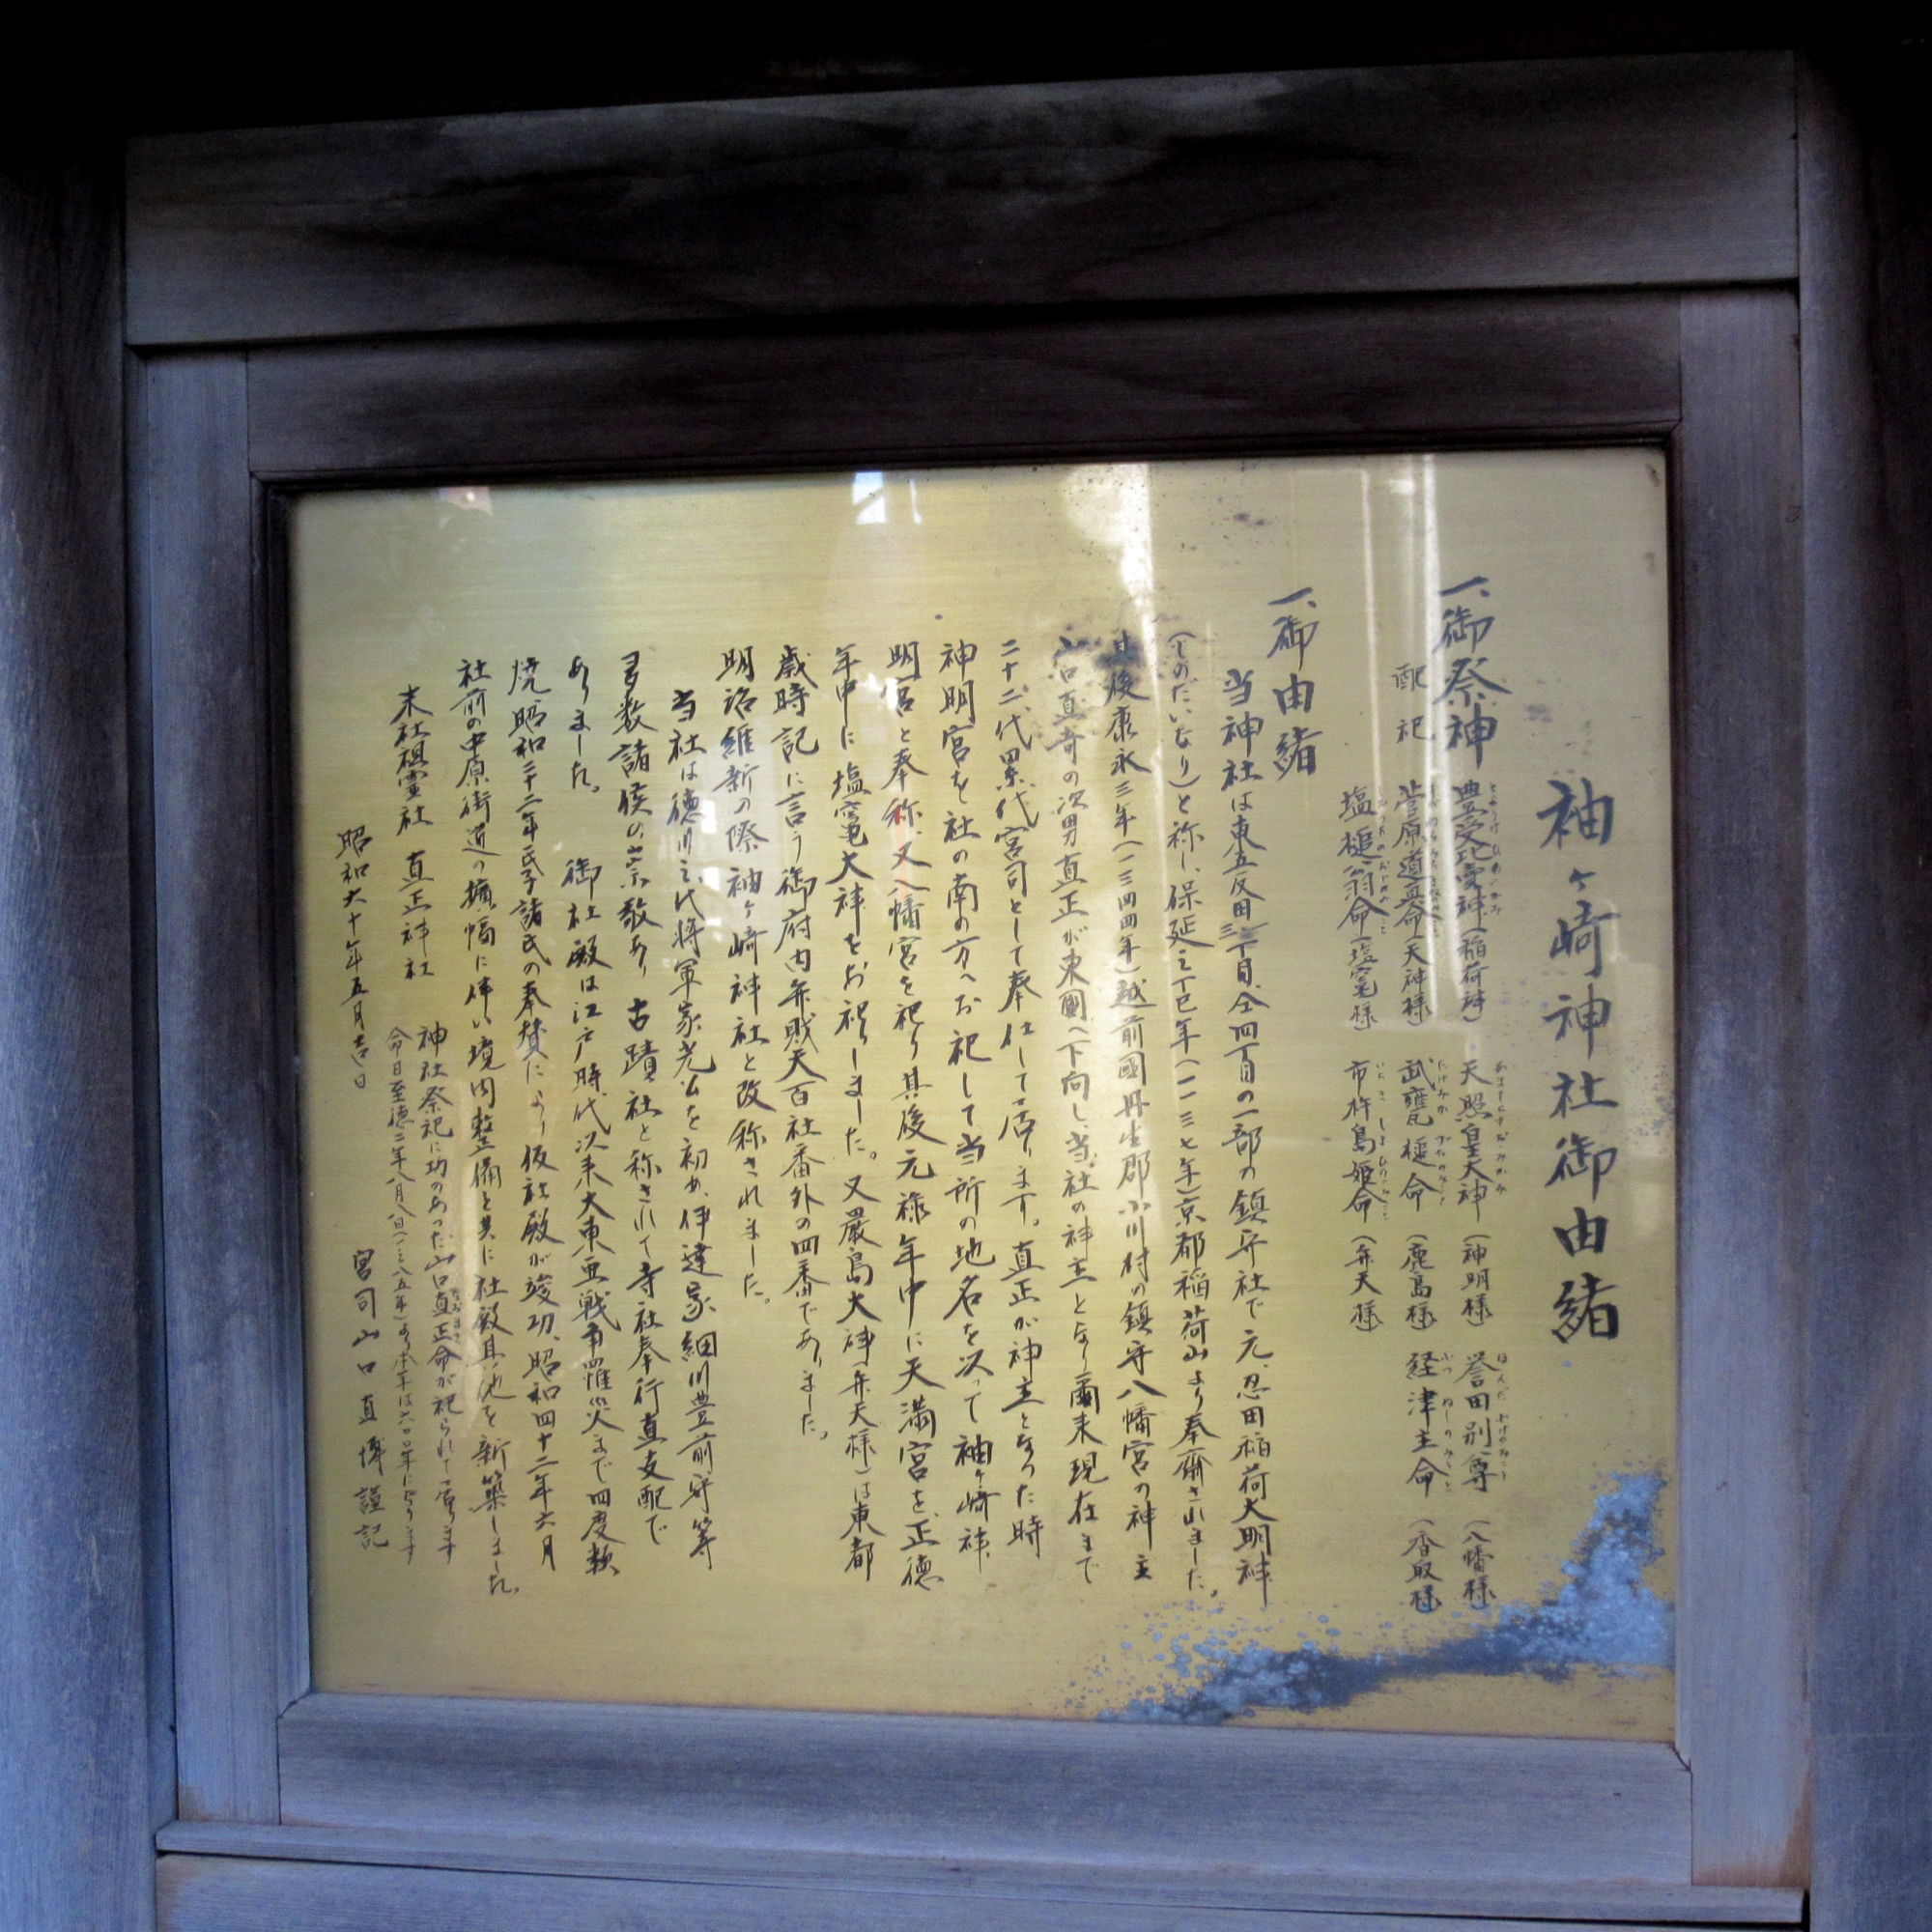 袖ヶ崎神社御由緒
一、御祭神 豊受比売神(稲荷神) 天照皇大神(神明様) 誉田別尊(八幡様)
配祀 菅原道真命(天神様) 武甕槌命(鹿島様) 経津主命(香取様)
塩槌翁命(塩竃様) 市杵島姫命(弁天様)
一、御由緒
当神社は東五反田三丁目、仝四丁目の一部の鎮守社で元、忍田稲荷大明神
(しのだいなり)と称し、保延三丁巳年(一一三七年)京都稲荷山より奉齋されました。
其後康永三年(一三四四年)越前國丹生郡小川村の鎮守八幡宮の神主
山口真奇の次男直正が東國へ下向し、当社の神主となり爾来現在まで
二十二代累代宮司として奉仕して居ります。直正が神主となった時
神明宮を社の南の方へお祀して当所の地名を以って袖ヶ崎神
明宮と奉称、又八幡宮を祀り其後元禄年中に天満宮を、正徳
年中に塩竃大神をお祀りしました。又厳島大神(弁天様)は東都
歳時記に言う御府内弁財天百社番外の四番でありました。
明治維新の際袖ヶ崎神社と改称されました。
当社は徳川三代将軍家光公を初め、伊達家細川豊前守等
多数諸侯の崇敬あり古蹟社と称されて寺社奉行直支配で
ありました。 御社殿は江戸時代以来大東亜戦争罹災まで四度熱
焼、昭和二十二年氏子諸氏の奉賛により仮社殿が竣功、昭和四十二年六月
社前の中原街道の擴幅に伴い境内整備と共に社殿其他を新築しました。
末社祖霊社 直正神社 神社祭祀に功のあった山口直正命が祀られて居ります
命日至徳二年八月八日(一三八五年)より本年は六〇〇年になります
昭和六十年五月吉日 宮司山口直博謹記